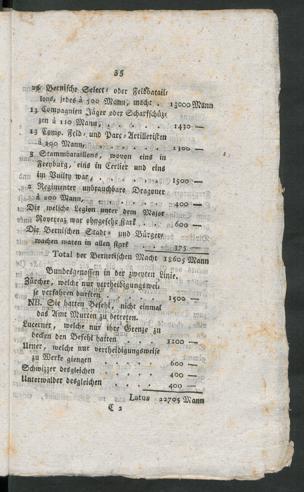 35
26 Bernische Select- oder Feldbatail-
lons, jedes à 500 Mann, macht . 13000 Mann
13 Compagnien Jäger oder Scharfschüz-
zen à 110 Mann, . . . . . . 1430 —
13 Comp. Feld- und Parc-Artilleristen
à 100 Mann, . . . . . 1300 —
3 Stammbataillons, wovon eins in
Freyburg, eins in Cerlier und eins
im Vuilly war, . . . . . 1500 —
2 Regimenter unbrauchbare Dragoner
à 200 Mann, . . . . . 400 —
Die welsche Legion unter dem Major
Rovereaz war ohngefehr stark . . 600 —
Die Bernischen Stadt- und Bürger-
wachen waren in allen stark . . 375 —
Total der Bernerischen Macht 18605 Mann
Bundsgenossen in der zweyten Linie.
Zürcher, welche nur vertheidigungswei-
se verfahren durften . . . . 1500 —
NB. Sie hatten Befehl, nicht einmal
das Amt Murten zu betreten.
Lucerner, welche nur ihre Grenze zu
decken den Befehl hatten . . . 1200 —
Urner, welche nur vertheidigungsweise
zu Werke giengen . . . . 600 —
Schwizzer desgleichen . . . . 400 —
Unterwalder desgleichen . . . . 400 —
Latus 22705 Mann
C 2